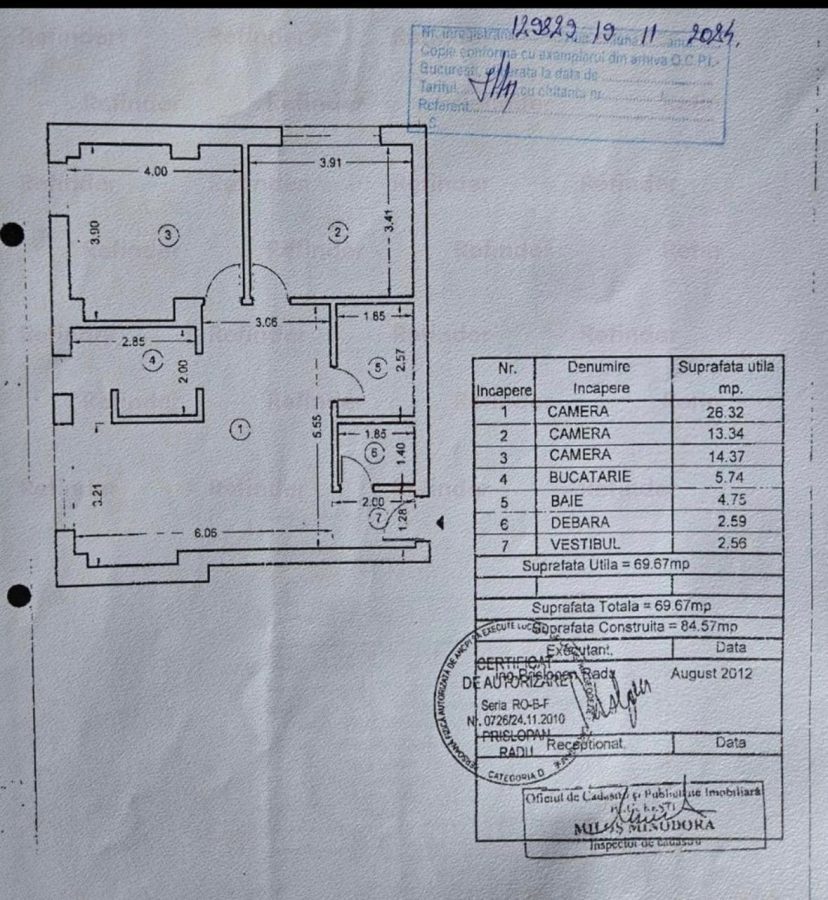 129829 19 11 2024.
Nr. inregistrare
Copie conforma cu exemplarul din arhiva O.C.P.I.-
Bucuresti, la data de
Tariful cu chitanta nr.
Referent
4.00
3.91
3.90
3
2
3.41
3.06
1.85
2.85
4
2.00
5
2.57
1
5.55
1.85
6
1.40
3.21
2.00
7
1.28
6.05
Nr. Incapere Denumire Incapere Suprafata utila mp.
1 CAMERA 26.32
2 CAMERA 13.34
3 CAMERA 14.37
4 BUCATARIE 5.74
5 BAIE 4.75
6 DEBARA 2.59
7 VESTIBUL 2.56
Suprafata Utila = 69.67mp
Suprafata Totala = 69.67mp
Suprafata Construita = 84.57mp
Executant, Data
Ing. Prislopan Radu August 2012
CERTIFICAT
DE AUTORIZARE
Seria RO-B-F
Nr. 0726/24.11.2010
PRISLOPAN
RADU
CATEGORIA D
Receptionat, Data
Oficiul de Cadastru şi Publicitate Imobiliară
BUCUREŞTI
MILOŞ MINODORA
Inspector de cadastru
Refinder